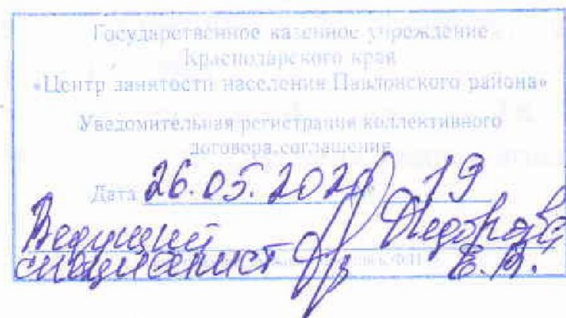 Государственное казенное учреждение
Краснодарского края
«Центр занятости населения Павловского района»
Уведомительная регистрация коллективного
договора, соглашения
Дата 26.05.2020 19
Ведущий
специалист Е.В.